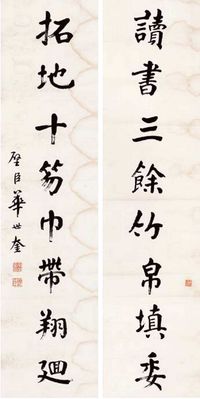 讀書三餘竹帛填委
拓地十笏巾帶翔迴
璧臣華世奎